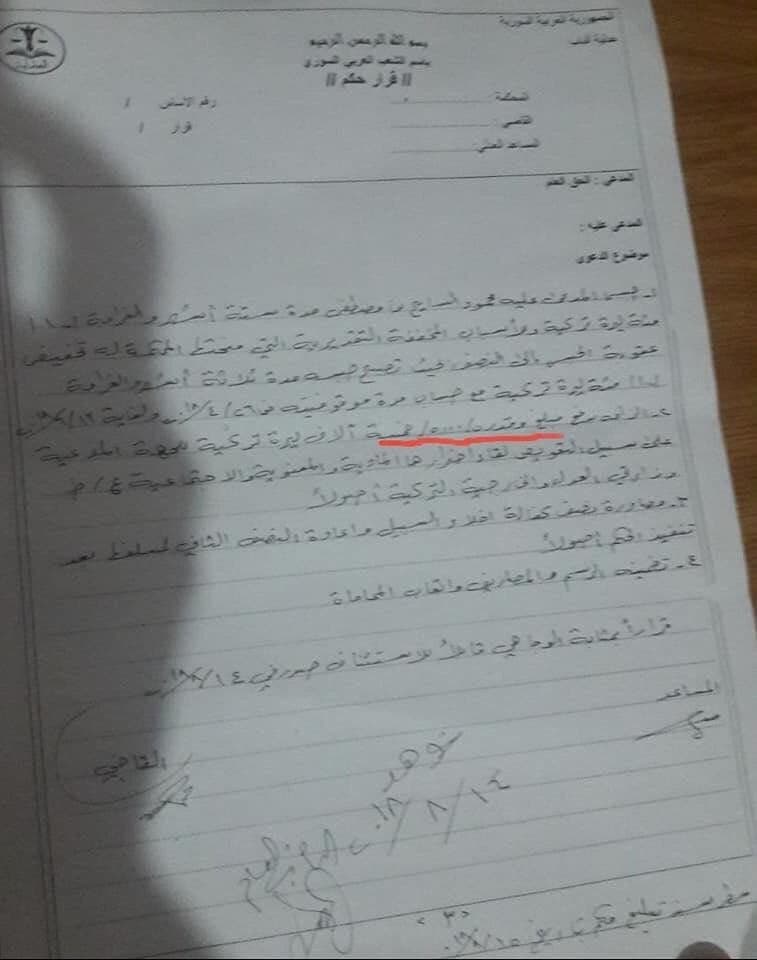 الجمهورية العربية السورية
عدلية
بسم الله الرحمن الرحيم
باسم الشعب العربي السوري
// قرار حكم //
المحكمة :
رقم الاساس /
القاضي :
قرار /
المساعد العدلي:
المدعي : الحق العام
المدعى عليه :
موضوع الدعوى
١- حبس المدعى عليه محمود السايح بن مصطفى مدة ستة أشهر والغرامة
مئة ليرة تركية وللأسباب المخففة التقديرية التي منحتها المحكمة له تخفيض
عقوبة الحبس إلى النصف بحيث تصبح حبسه مدة ثلاثة أشهر والغرامة
مئة ليرة تركية مع حساب مدة موقوفيته من ٢٦/٤/ ولغاية
٢- الزامه بدفع مبلغ وقدره /٥٠٠٠/ خمسة آلاف ليرة تركية للجهة المدعية
على سبيل التعويض لقاء أضرارها المادية والمعنوية والاجتماعية
وزارتي العدل والخارجية التركية أصولاً
٣- مصادرة نصف كفالة اخلاء السبيل واعادة النصف الثاني لمسلفها بعد
تنفيذ الحكم أصولاً
٤- تضمينه الرسم والمصاريف واتعاب المحاماة
قراراً بمثابة الوجاهي قابلاً للاستئناف صدر في ١٤/٨/
المساعد
القاضي
١٤/٨/
<٣>